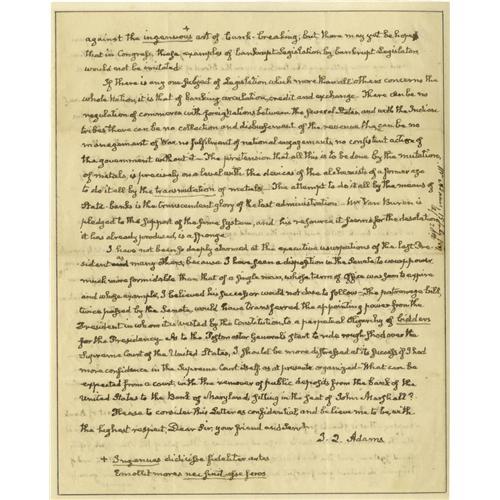 against the ingenuous + art of bank-breaking; but there may yet be hope
that in Congress, these examples of bankrupt legislation by bankrupt Legislators
would not be imitated
If there is any one subject of Legislation which more than all others concerns the
whole Nation, it is that of banking circulation, credit and exchange. There can be no
regulation of commerce with foreign Nations between the several States, and with the Indian
tribes there can be no collection and disbursement of the revenue there can be no
management of War no fulfilment of national engagements, no consistent action of
the government without it — The pretension that all this is to be done by the
of metals, is precisely on a level with the devices of the alchemists of a former age
to do it all by the transmutation of metals. The attempt to do it all by the means of
State-banks is the transcendent glory of the last administration. Mr Van Buren is
pledged to the support of the same System, and his resource it seems for the desolation
it has already produced, is a sponge.
I have not been so deeply alarmed at the executive usurpations of the last Pre-
sident as many others, because I have seen a disposition in the Senate to usurp power
much more formidable than that of a single man, whose term of Office was soon to expire
and whose example, I believed his successor would not dare to follow — The patronage bill,
twice passed by the Senate, would have transferred the appointing power from the
President in whom it is vested by the Constitution, to a perpetual Oligarchy of bidders
for the Presidency. As to the Postmaster General's start to ride rough shod over the
Supreme Court of the United States, I should be more distressed at its success if I had
more confidence in the Supreme Court itself as at present organized. What can be
expected from a court, with the remover of public deposits from the Bank of the
United States to the Bank of Maryland, sitting in the seat of John Marshall?
Please to consider this Letter as confidential and believe me to be, with
the highest respect, Dear Sir, your friend and Servt
J. Q. Adams
+ Ingenuas didicisse fideliter artes
Emollit mores nec sinit esse feros